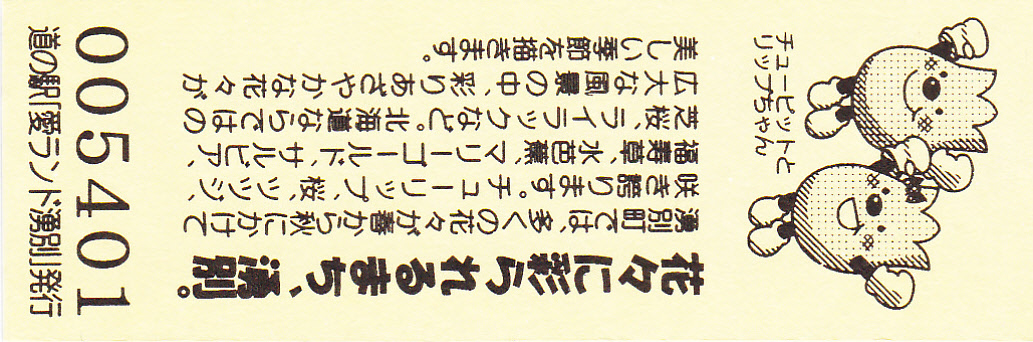 花々に彩られるまち、湧別。
湧別町では、多くの花々が春から秋にかけて
咲き誇ります。チューリップ、桜、ツツジ、
福寿草、水芭蕉、マリーゴールド、サルビア、
芝桜、ライラックなど。北海道ならではの
広大な風景の中、彩りあざやかな花々が
美しい季節を描きます。
チューピットと
リップちゃん
005401
道の駅「愛ランド湧別」発行